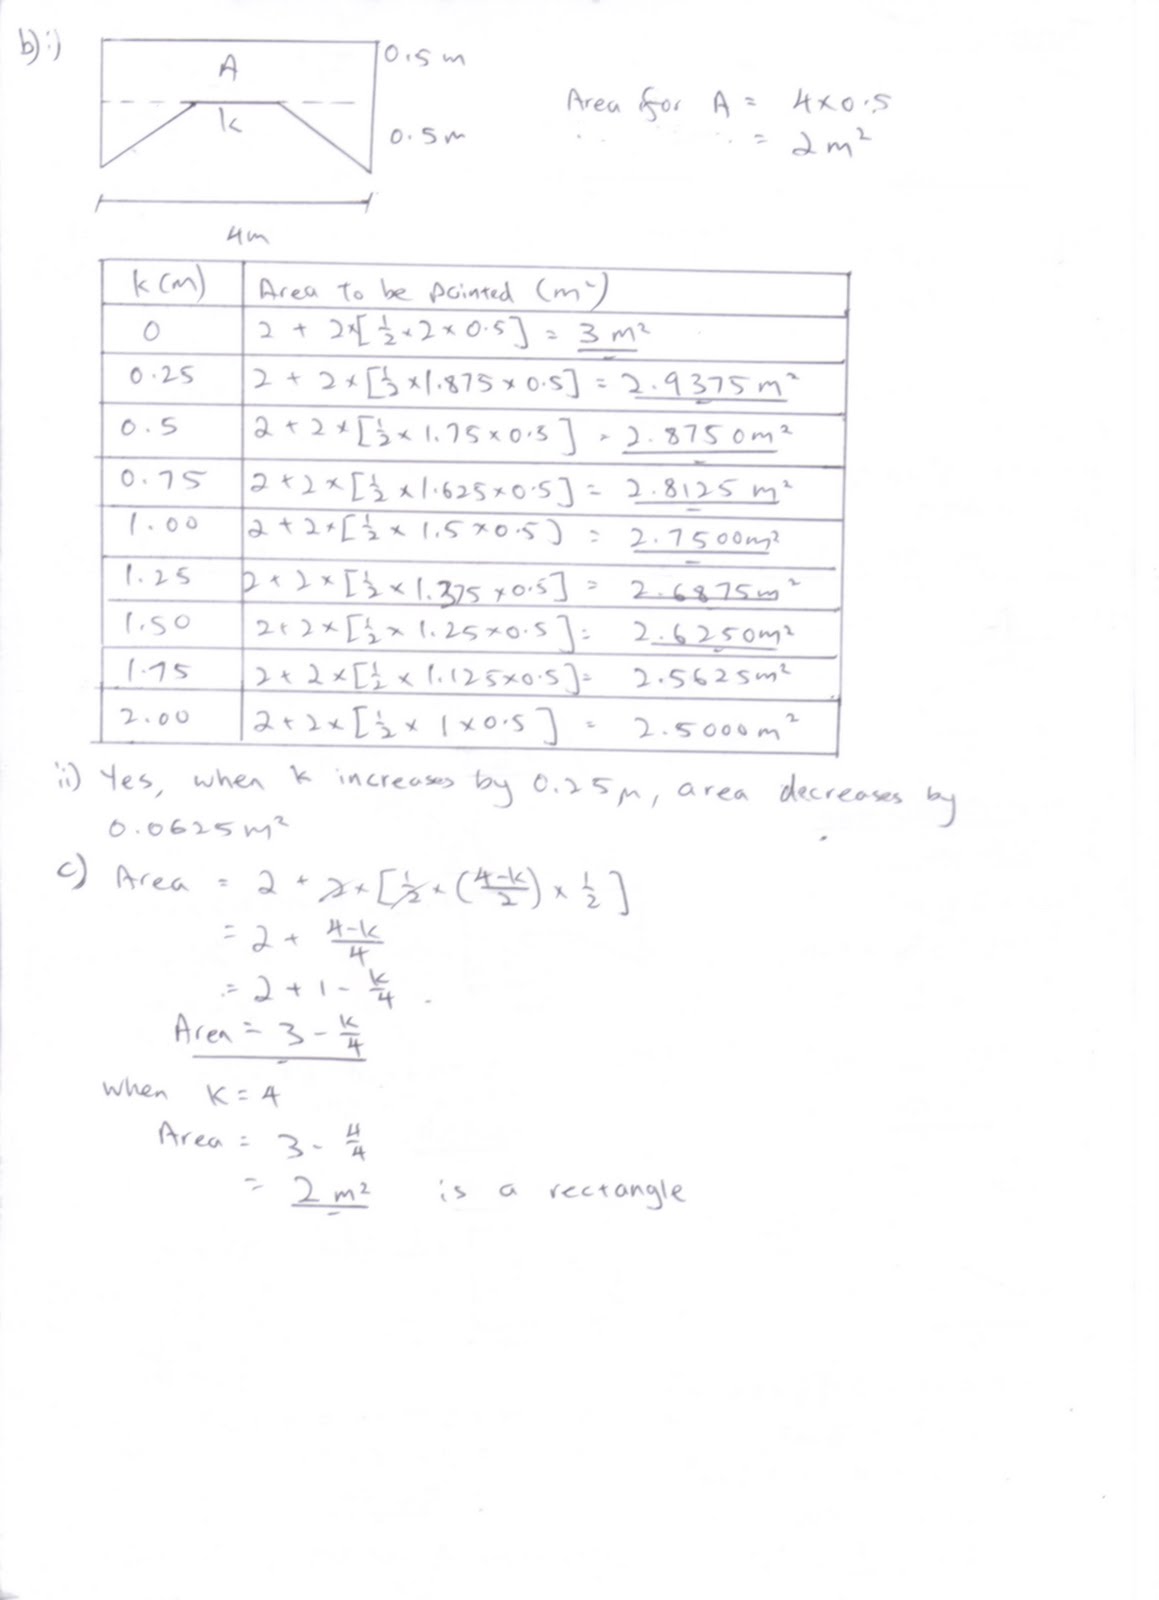 b) i)
A
0.5m
k
0.5m
4m
Area for A = 4×0.5
.. .. = 2m²
k (m) Area to be painted (m²)
0 2 + 2×[½×2×0.5] = 3 m²
0.25 2 + 2×[½×1.875×0.5] = 2.9375m²
0.5 2 + 2×[½×1.75×0.5] = 2.8750m²
0.75 2 + 2×[½×1.625×0.5] = 2.8125 m²
1.00 2 + 2×[½×1.5×0.5] = 2.7500m²
1.25 2 + 2×[½×1.375×0.5] = 2.6875m²
1.50 2 + 2×[½×1.25×0.5] = 2.6250m²
1.75 2 + 2×[½×1.125×0.5] = 2.5625m²
2.00 2 + 2×[½×1×0.5] = 2.5000m²
ii) Yes, when k increases by 0.25m, area decreases by
0.0625m²
c) Area = 2 + 2×[½×((4-k)/2)×½]
= 2 + (4-k)/4
= 2 + 1 - k/4
Area = 3 - k/4
when k = 4
Area = 3 - 4/4
= 2 m² is a rectangle